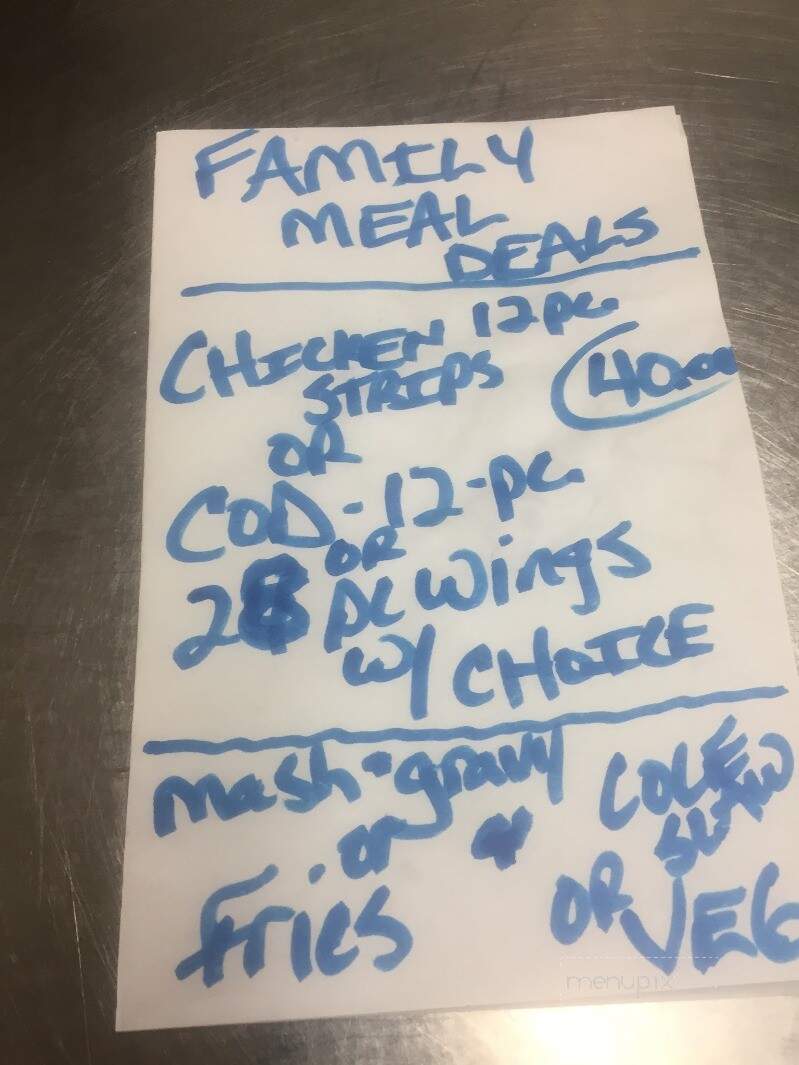 FAMILY
MEAL
DEALS
CHICKEN 12 pc.
STRIPS 40.00
OR
COD - 12 - pc.
OR
pc wings
w/ CHOICE
mash + gravy COLE
SLAW
or
fries OR VEG
menupix